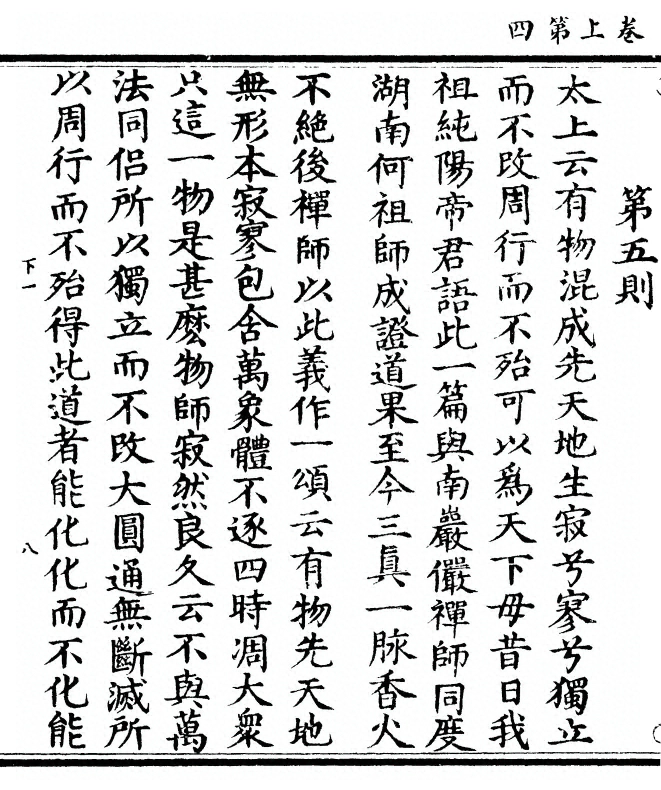 卷上第四
第五則
太上云有物混成先天地生寂兮寥兮獨立
而不改周行而不殆可以爲天下母昔日我
祖純陽帝君語此一篇與南巖儼禪師同度
湖南何祖師成證道果至今三眞一脉香火
不絕後禪師以此義作一頌云有物先天地
無形本寂寥包含萬象體不逐四時凋大衆
只這一物是甚麽物師寂然良久云不與萬
法同侣所以獨立而不改大圓通無斷滅所
以周行而不殆得此道者能化化而不化能
下一
八